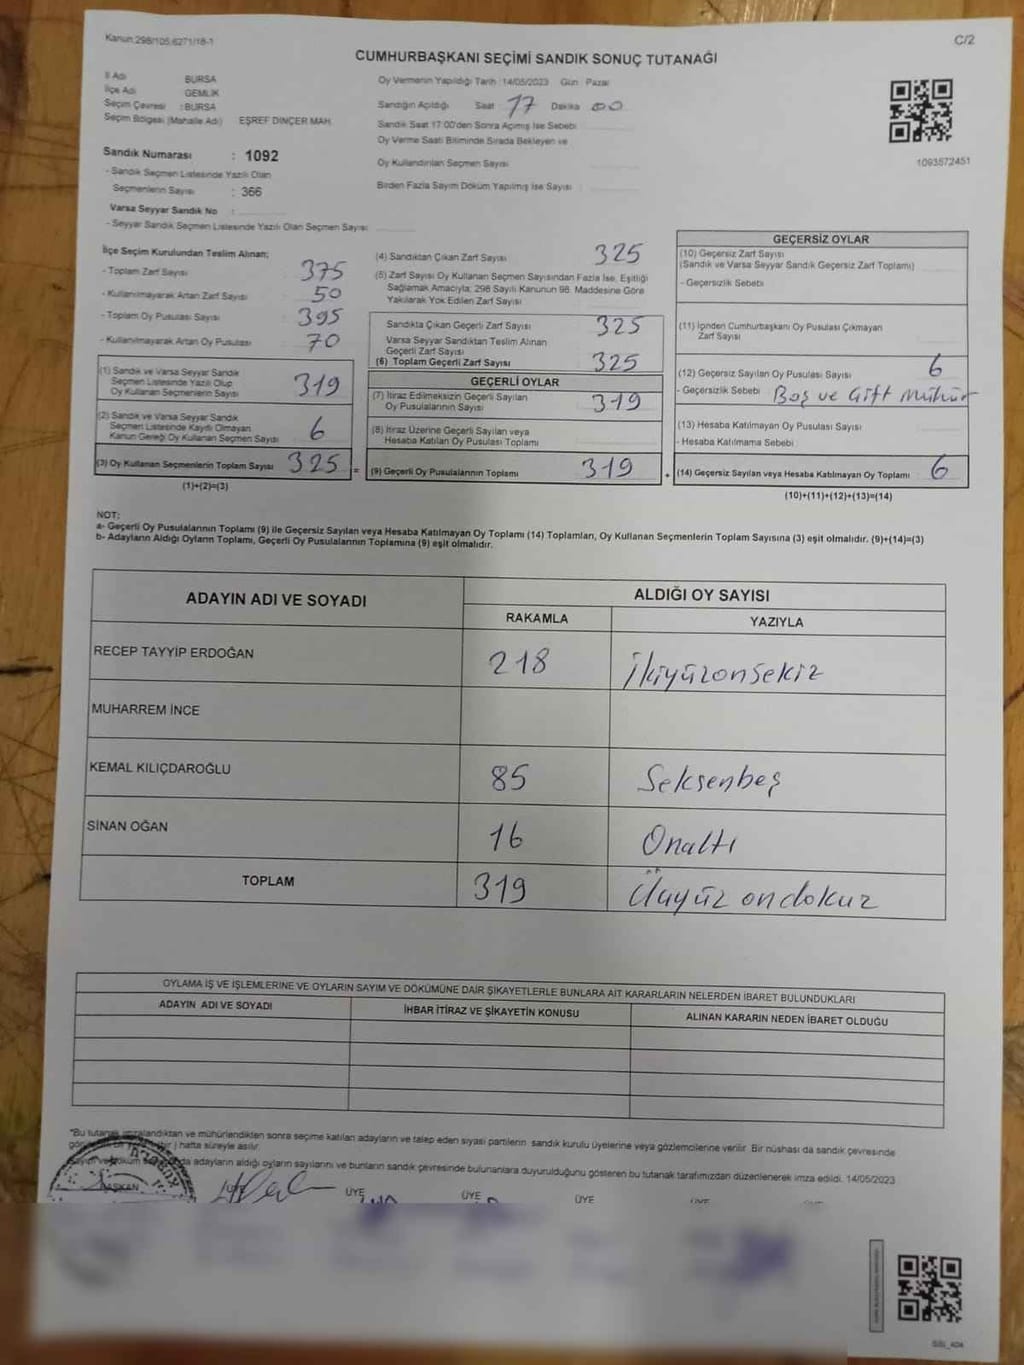 Kanun:298/105,6271/18-1
C/2
CUMHURBAŞKANI SEÇİMİ SANDIK SONUÇ TUTANAĞI
İl Adı BURSA
İlçe Adı GEMLİK
Seçim Çevresi : BURSA
Seçim Bölgesi (Mahalle Adı) EŞREF DİNÇER MAH.
Sandık Numarası : 1092
- Sandık Seçmen Listesinde Yazılı Olan
Seçmenlerin Sayısı : 366
Varsa Seyyar Sandık No :
- Seyyar Sandık Seçmen Listesinde Yazılı Olan Seçmen Sayısı
Oy Vermenin Yapıldığı Tarih : 14/05/2023 Gün : Pazar
Sandığın Açıldığı Saat : 17 Dakika : 00
Sandık Saat 17:00'den Sonra Açılmış İse Sebebi
Oy Verme Saati Bitiminde Sırada Bekleyen ve
Oy Kullandırılan Seçmen Sayısı
Birden Fazla Sayım Döküm Yapılmış İse Sayısı :
1093572451
İlçe Seçim Kurulundan Teslim Alınan;
- Toplam Zarf Sayısı 375
- Kullanılmayarak Artan Zarf Sayısı 50
- Toplam Oy Pusulası Sayısı 395
- Kullanılmayarak Artan Oy Pusulası 70
(1) Sandık ve Varsa Seyyar Sandık
Seçmen Listesinde Yazılı Olup
Oy Kullanan Seçmenlerin Sayısı 319
(2) Sandık ve Varsa Seyyar Sandık
Seçmen Listesinde Kayıtlı Olmayan
Kanun Gereği Oy Kullanan Seçmen Sayısı 6
(3) Oy Kullanan Seçmenlerin Toplam Sayısı 325 =
(1)+(2)=(3)
(4) Sandıktan Çıkan Zarf Sayısı 325
(5) Zarf Sayısı Oy Kullanan Seçmen Sayısından Fazla İse, Eşitliği
Sağlamak Amacıyla; 298 Sayılı Kanunun 98. Maddesine Göre
Yakılarak Yok Edilen Zarf Sayısı
Sandıkta Çıkan Geçerli Zarf Sayısı 325
Varsa Seyyar Sandıktan Teslim Alınan
Geçerli Zarf Sayısı
(6) Toplam Geçerli Zarf Sayısı 325
GEÇERLİ OYLAR
(7) İtiraz Edilmeksizin Geçerli Sayılan
Oy Pusulalarının Sayısı 319
(8) İtiraz Üzerine Geçerli Sayılan veya
Hesaba Katılan Oy Pusulası Toplamı
(9) Geçerli Oy Pusulalarının Toplamı 319 +
GEÇERSİZ OYLAR
(10) Geçersiz Zarf Sayısı
(Sandık ve Varsa Seyyar Sandık Geçersiz Zarf Toplamı)
- Geçersizlik Sebebi
(11) İçinden Cumhurbaşkanı Oy Pusulası Çıkmayan
Zarf Sayısı
(12) Geçersiz Sayılan Oy Pusulası Sayısı 6
- Geçersizlik Sebebi Boş ve Çift Mühür
(13) Hesaba Katılmayan Oy Pusulası Sayısı
- Hesaba Katılmama Sebebi
(14) Geçersiz Sayılan veya Hesaba Katılmayan Oy Toplamı 6
(10)+(11)+(12)+(13)=(14)
NOT:
a- Geçerli Oy Pusulalarının Toplamı (9) ile Geçersiz Sayılan veya Hesaba Katılmayan Oy Toplamı (14) Toplamları, Oy Kullanan Seçmenlerin Toplam Sayısına (3) eşit olmalıdır. (9)+(14)=(3)
b- Adayların Aldığı Oyların Toplamı, Geçerli Oy Pusulalarının Toplamına (9) eşit olmalıdır.
ADAYIN ADI VE SOYADI ALDIĞI OY SAYISI
RAKAMLA YAZIYLA
RECEP TAYYİP ERDOĞAN 218 İkiyüzonsekiz
MUHARREM İNCE
KEMAL KILIÇDAROĞLU 85 Seksenbeş
SİNAN OĞAN 16 Onaltı
TOPLAM 319 Üçyüz ondokuz
OYLAMA İŞ VE İŞLEMLERİNE VE OYLARIN SAYIM VE DÖKÜMÜNE DAİR ŞİKAYETLERLE BUNLARA AİT KARARLARIN NELERDEN İBARET BULUNDUKLARI
ADAYIN ADI VE SOYADI İHBAR İTİRAZ VE ŞİKAYETİN KONUSU ALINAN KARARIN NEDEN İBARET OLDUĞU
*Bu tutanak imzalandıktan ve mühürlendikten sonra seçime katılan adayların ve talep eden siyasi partilerin sandık kurulu üyelerine veya gözlemcilerine verilir. Bir nüshası da sandık çevresinde
hafta süreyle asılır.
adayların aldığı oyların sayılarını ve bunların sandık çevresinde bulunanlara duyurulduğunu gösteren bu tutanak tarafımızdan düzenlenerek imza edildi. 14/05/2023
BAŞKAN ÜYE ÜYE ÜYE